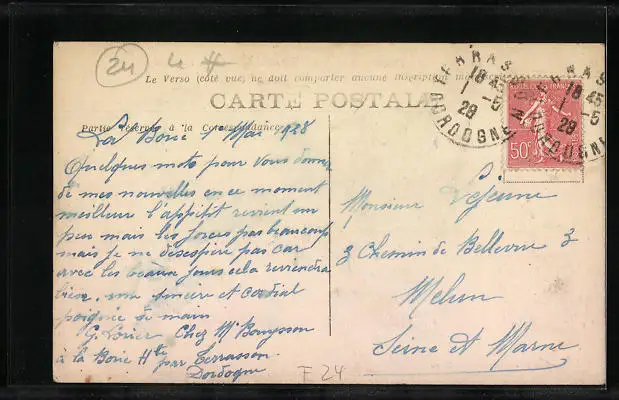 24
Le Verso (côté vue) ne doit comporter aucune inscription
CARTE POSTALE
Partie réservée à la Correspondance
La Borie 1er Mai 1928
Quelques mots pour vous donner
de mes nouvelles en ce moment
meilleur l'appétit revient un
peu mais les forces pas beaucoup
mais je ne desespère pas car
avec les beaux jours cela reviendra
bien, une sincère et cordial
poignée de main
G. Chez Mr Bouysson
à la Borie Hte par Terrasson
Dordogne
F 24
TERRASSON
18 45
1 -5
28
DORDOGNE
TERRASSON
18 45
1 -5
28
DORDOGNE
50c
Monsieur Lejeune
3 Chemin de Bellevue 3
Melun
Seine et Marne